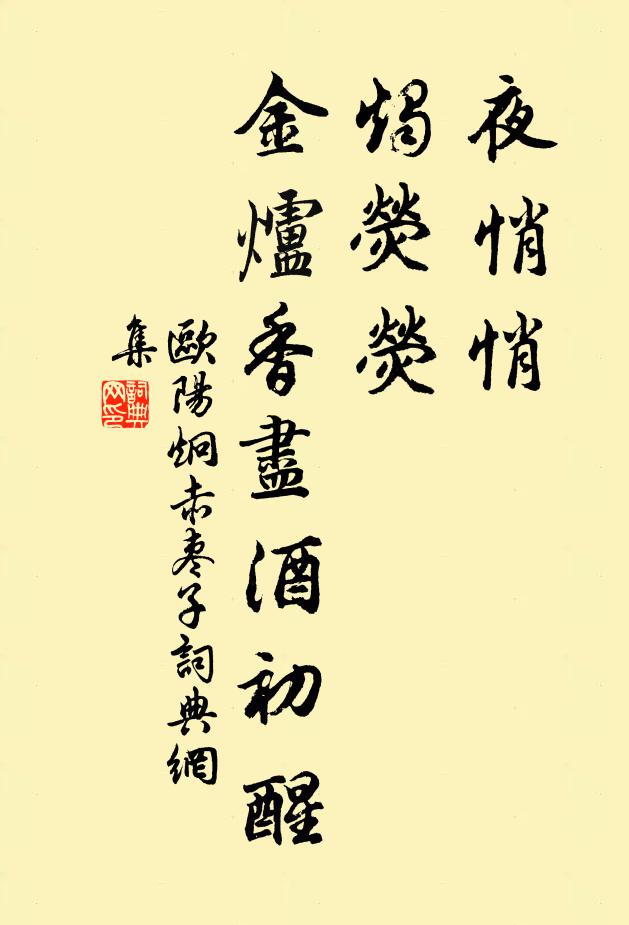 夜悄悄
燭熒熒
金爐香盡酒初醒
歐陽炯赤棗子詞典網
集
詞典网印